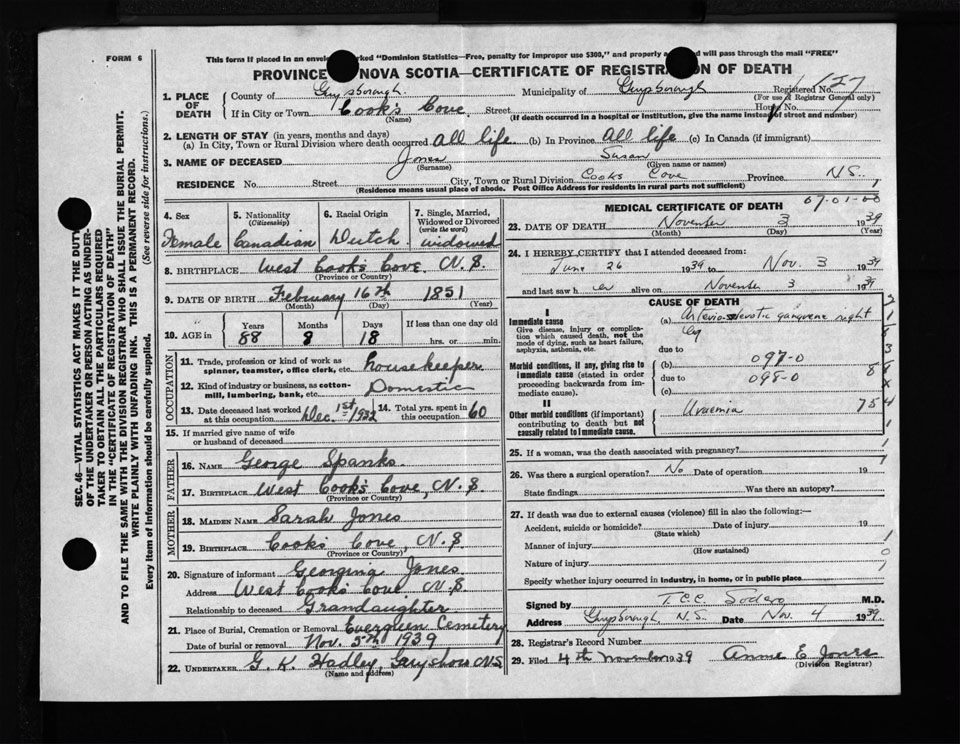 FORM 6
This form if placed in an envel rked "Dominion Statistics—Free, penalty for improper use $300," and properly a ed will pass through the mail "FREE"
PROVINCE NOVA SCOTIA—CERTIFICATE OF REGISTR ON OF DEATH
1. PLACE OF DEATH
County of Guysborough Municipality of Guysborough Registered No. 127
(For use of Registrar General only)
If in City or Town Cook's Cove Street
(Name) (If death occurred in a hospital or institution, give the name instead of street and number)
2. LENGTH OF STAY (in years, months and days)
(a) In City, Town or Rural Division where death occurred All life. (b) In Province All life (c) In Canada (if immigrant)
3. NAME OF DECEASED Jones Susan
(Surname) (Given name or names)
RESIDENCE No. Street City, Town or Rural Division Cooks Cove Province N.S.
(Residence means usual place of abode. Post Office Address for residents in rural parts not sufficient)
4. Sex Female
5. Nationality (Citizenship) Canadian
6. Racial Origin Dutch
7. Single, Married, Widowed or Divorced (write the word) widowed
8. BIRTHPLACE West Cook's Cove. N.S.
(Province or Country)
9. DATE OF BIRTH February 16th 1851
(Month) (Day) (Year)
10. AGE in Years 88 Months 8 Days 18 If less than one day old hrs. or min.
OCCUPATION
11. Trade, profession or kind of work as spinner, teamster, office clerk, etc. Housekeeper
12. Kind of industry or business, as cotton-mill, lumbering, bank, etc. Domestic
13. Date deceased last worked at this occupation Dec. 1st 1932 14. Total yrs. spent in this occupation 60
15. If married give name of wife or husband of deceased
FATHER
16. NAME George Spanks.
17. BIRTHPLACE West Cook's Cove, N.S.
(Province or Country)
MOTHER
18. MAIDEN NAME Sarah Jones
19. BIRTHPLACE Cooks Cove, N.S.
(Province or Country)
20. Signature of informant Georgina Jones
Address West Cooks Cove N.S
Relationship to deceased Grandaughter
21. Place of Burial, Cremation or Removal Evergreen Cemetery
Date of burial or removal Nov. 5th 1939
22. UNDERTAKER G. K. Hadley, N.S.
(Name and address)
MEDICAL CERTIFICATE OF DEATH 07-01-00
23. DATE OF DEATH November 3 1939
(Month) (Day) (Year)
24. I HEREBY CERTIFY that I attended deceased from:
June 26 1939 to Nov. 3 1939
and last saw her alive on November 3 1939
CAUSE OF DEATH
I
Immediate cause
Give disease, injury or complication which caused death, not the mode of dying, such as heart failure, asphyxia, asthenia, etc.
(a) Arterio-sclerotic gangrene right leg
due to
Morbid conditions, if any, giving rise to immediate cause (stated in order proceeding backwards from immediate cause).
(b) 097-0
due to 098-0
(c)
II
Other morbid conditions (if important) contributing to death but not causally related to immediate cause.
Uraemia
25. If a woman, was the death associated with pregnancy?
26. Was there a surgical operation? No Date of operation 19
State findings Was there an autopsy?
27. If death was due to external causes (violence) fill in also the following:—
Accident, suicide or homicide? Date of injury 19
(State which)
Manner of injury
(How sustained)
Nature of injury
Specify whether injury occurred in industry, in home, or in public place
Signed by T.C.C. Sodero M.D.
Address Guysborough, N.S. Date Nov. 4 1939
28. Registrar's Record Number
29. Filed 4th November 1939 Annie E Jones
(Division Registrar)
SEC. 46—VITAL STATISTICS ACT MAKES IT THE DUTY
OF THE UNDERTAKER OR PERSON ACTING AS UNDER-
TAKER TO OBTAIN ALL THE PARTICULARS REQUIRED
IN THE "CERTIFICATE OF REGISTRATION OF DEATH"
AND TO FILE THE SAME WITH THE DIVISION REGISTRAR WHO SHALL ISSUE THE BURIAL PERMIT.
WRITE PLAINLY WITH UNFADING INK. THIS IS A PERMANENT RECORD.
Every item of information should be carefully supplied. (See reverse side for instructions.)